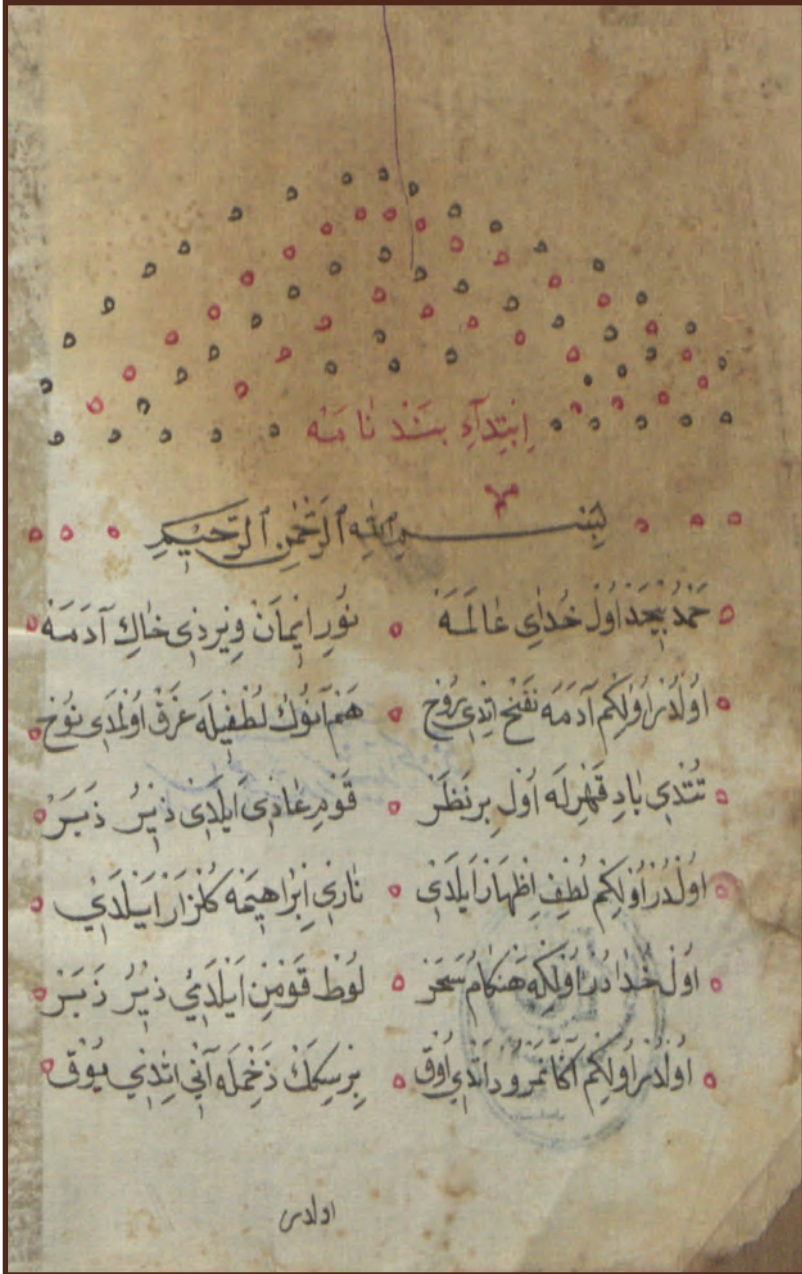 اِبْتِدَآءِ پَنْدْ نَامَه
بِسْمِ اللّٰهِ الرَّحْمٰنِ الرَّحِيْمِ
حَمْدُ بِيحَدْ اُولْ خُدَايِ عَالَمَه نُورِ اِيْمَانْ وِيرْدِي خَاكِ آدَمَه
اُولْدُرْ اُولْكِمْ آدَمَه نَفْخْ اِتْدِي رُوحْ هَمْ آنُوكْ لُطْفِيلَه غَرَقْ اُولْمَدِي نُوحْ
تُتْدِي بَادِ قَهْرِلَه اُولْ بِرْ نَظَرْ قَوْمِ عَادِي اَيْلَدِي زِيرُ زَبَرْ
اُولْدُرْ اُولْكِمْ لُطْفِ اِظْهَارْ اَيْلَدِي نَارِي اِبْرَاهِيمَه كُلْزَارْ اَيْلَدِي
اُولْ خُدَادُرْ اُولْكِه هَنْكَامُ سَحَرْ لُوطْ قَوْمِنْ اَيْلَدِي زِيرُ زَبَرْ
اُولْدُرْ اُولْكِمْ آكَا نَمْرُودْ اَتْدِي اُوقْ بِرْ سِكَكْ زَخْمِلَه آنِي اِتْدِي يُوقْ
اولدر